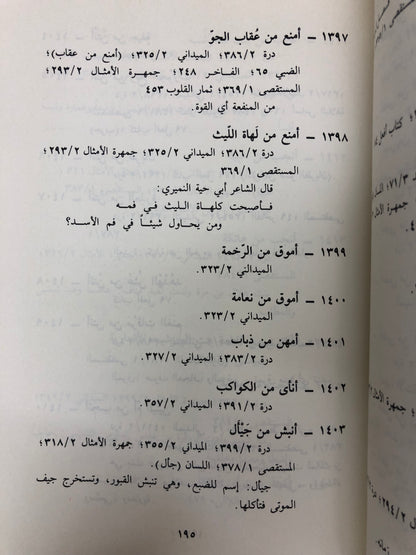 ١٣٩٧ – أمنع من عُقاب الجوّ
درة ٣٨٦/٢؛ الميداني ٣٢٥/٢؛ (أمنع من عقاب)؛
الضبي ٦٥؛ الفاخر ٢٤٨؛ جمهرة الأمثال ٢٩٣/٢؛
المستقصى ٣٦٩/١؛ ثمار القلوب ٤٥٣
من المنفعة أي القوة.
١٣٩٨ – أمنع من لَهاة اللّيث
درة ٣٨٦/٢؛ الميداني ٣٢٥/٢؛ جمهرة الأمثال ٢٩٣/٢؛
المستقصى ٣٦٩/١
قال الشاعر أبي حية النميري:
فـأصبحت كلهـاة الليـث في فمـه
ومن يحـاول شيئـاً في فم الأسـد؟
١٣٩٩ – أموق من الرّخمة
الميدالني ٣٢٣/٢.
١٤٠٠ – أموق من نعامة
الميداني ٣٢٣/٢.
١٤٠١ – أمهن من ذباب
درة ٣٨٣/٢؛ الميداني ٣٢٧/٢.
١٤٠٢ – أنأى من الكواكب
درة ٣٩١/٢؛ الميداني ٣٥٧/٢.
١٤٠٣ – أنبش من جَيْأل
درة ٣٩٩/٢؛ الميداني ٣٥٥/٢؛ جمهرة الأمثال ٣١٨/٢؛
المستقصى ٣٧٨/١؛ اللسان (جأل).
جيأل: إسم للضبع، وهي تنبش القبور، وتستخرج جيف
الموتى فتأكلها.
١٩٥